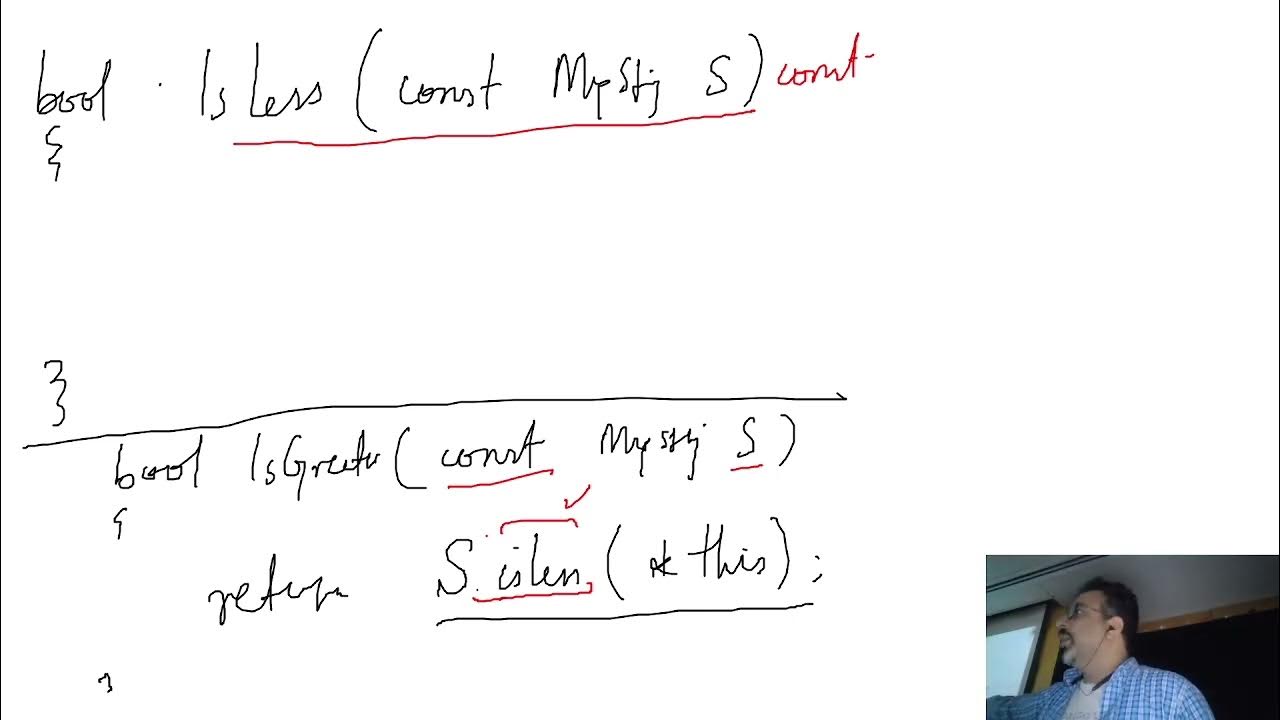 bool IsLess (const MyString S) const
{
}
bool IsGreater (const MyString S)
{
return S.isless (*this);
}